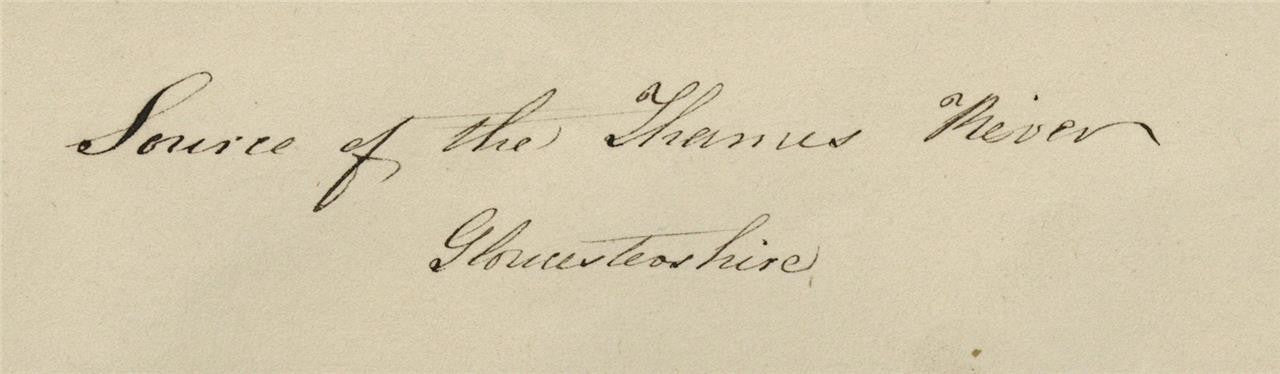 Source of the Thames River
Gloucestershire